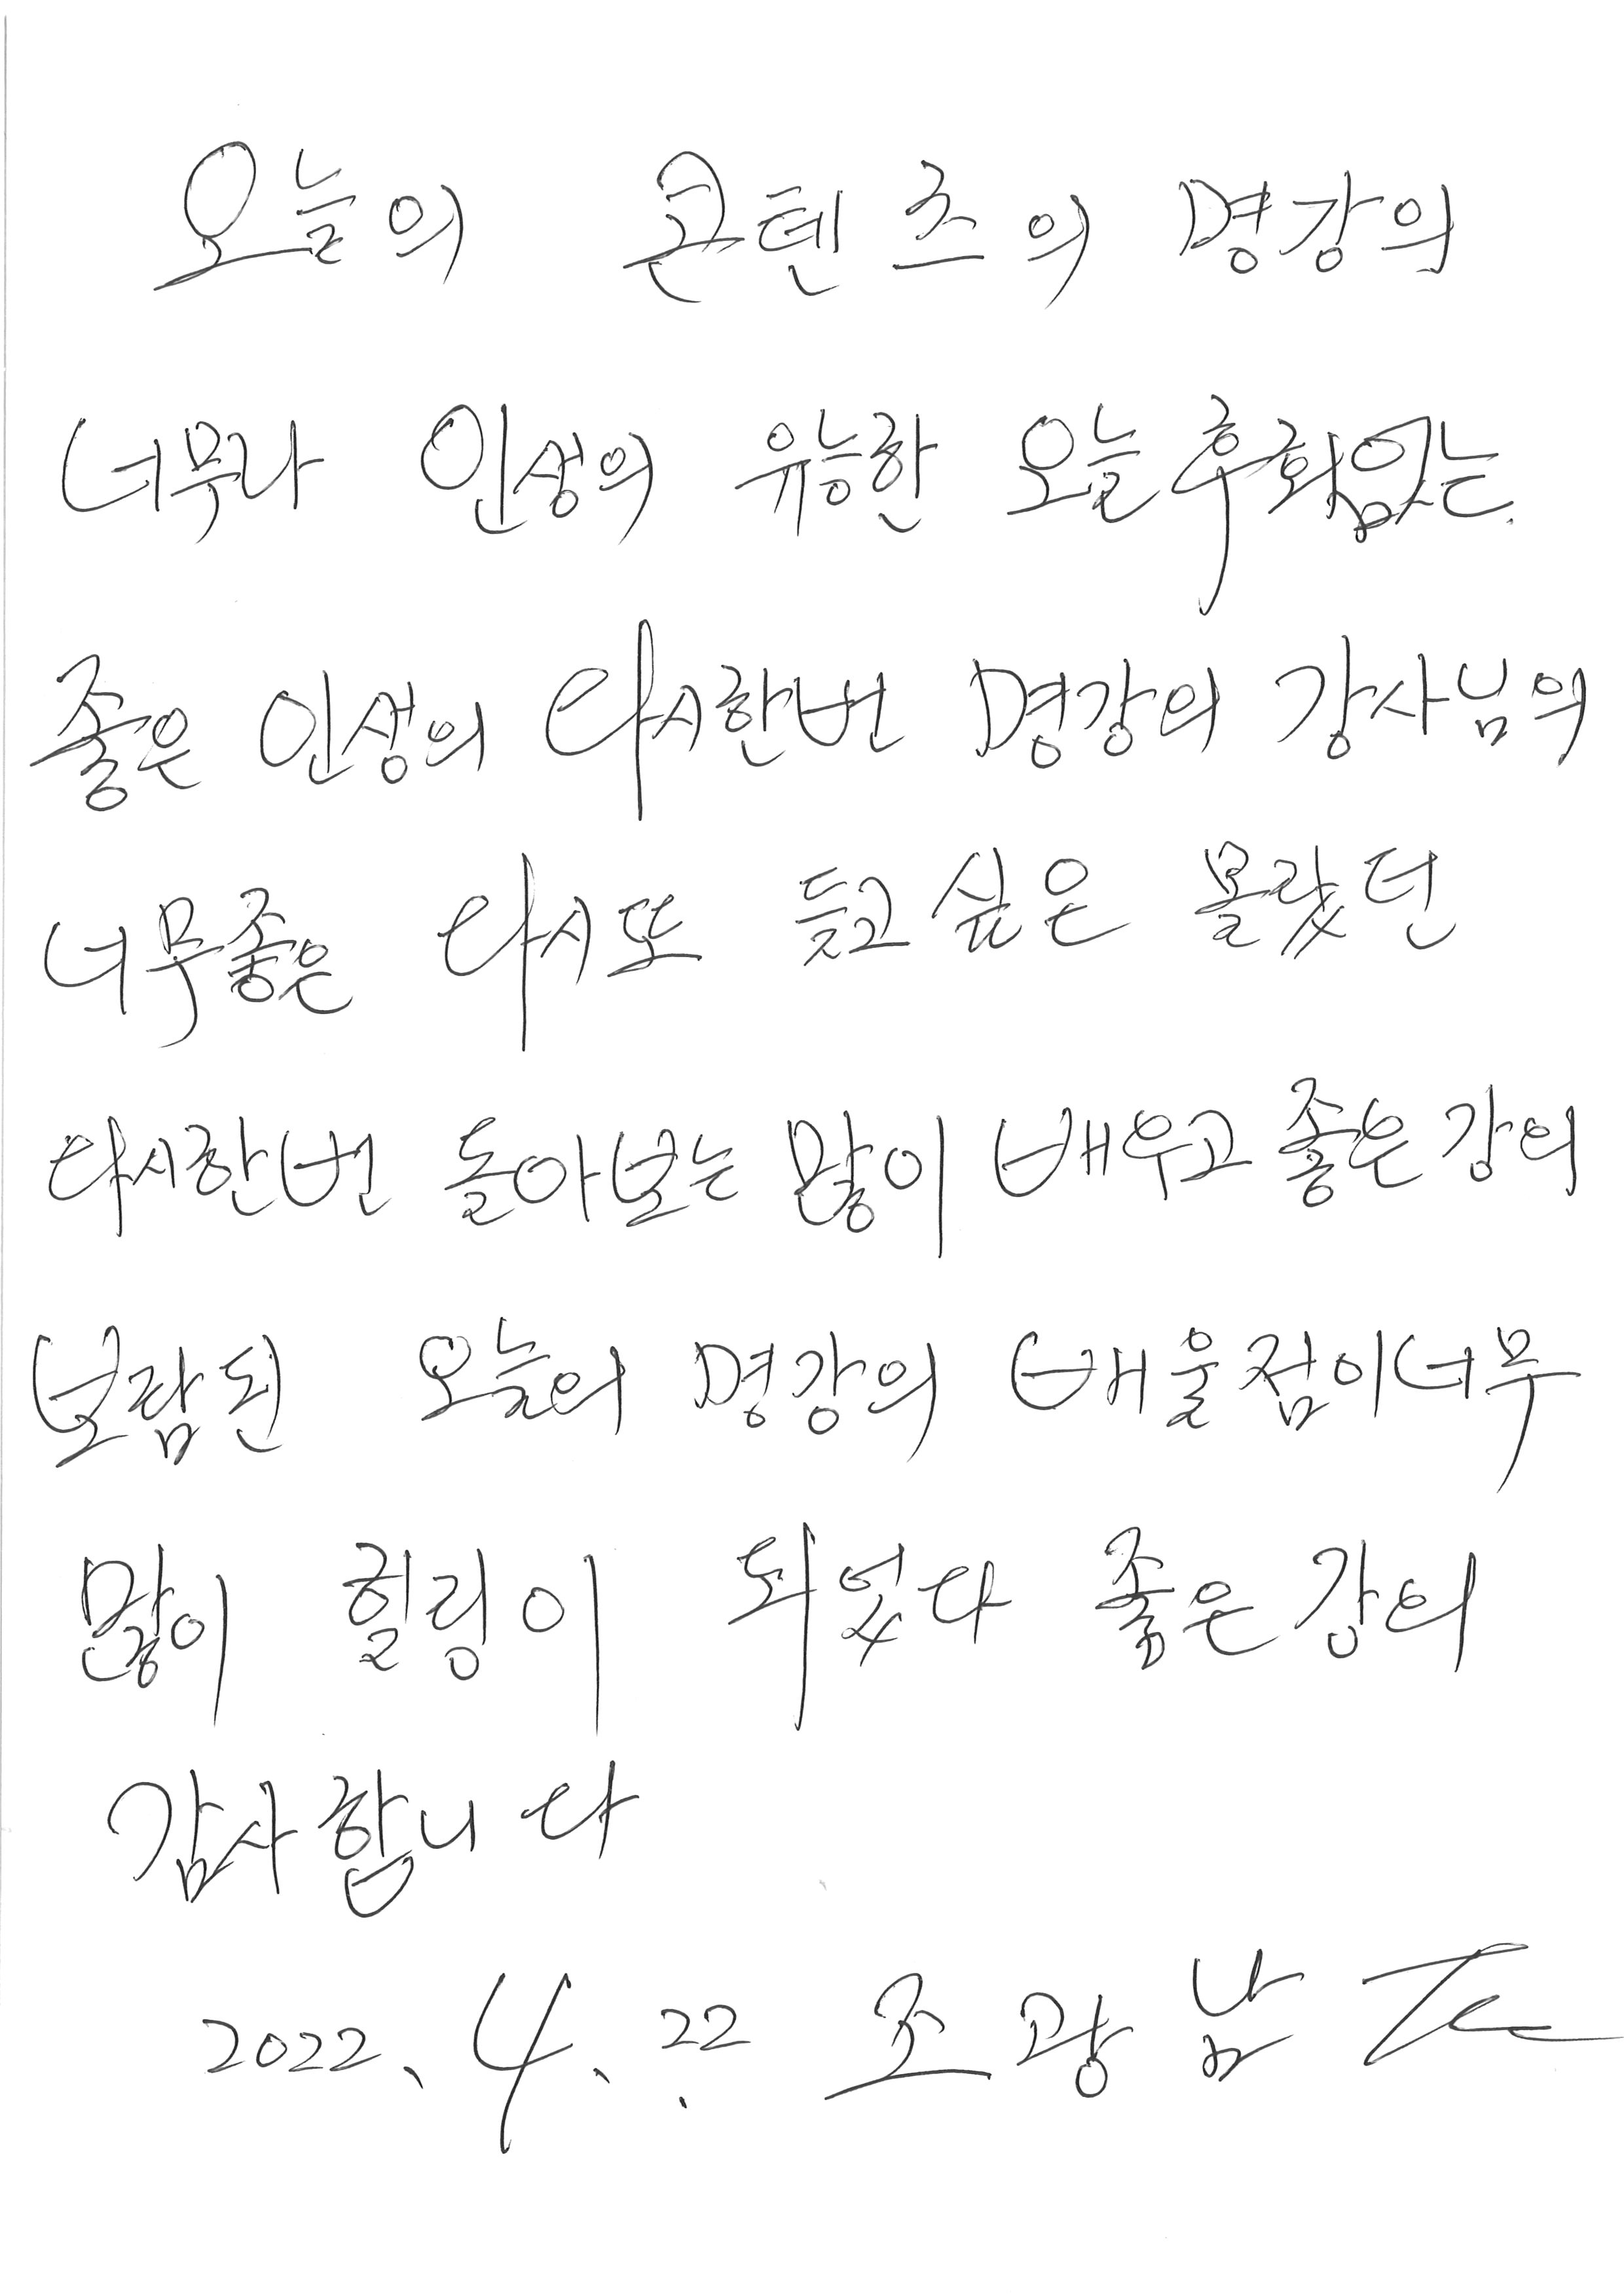 오늘의 콘텐츠의 명강의
너무나 인생의 유능한 오늘 후회없는
좋은 인생의 다시한번 명강의 강사님의
너무좋은 다시또 듣고 싶은 몰랐던
다시한번 돌아보는 많이 배우고 좋은 강의
보람된 오늘의 명강의 배울점이 너무
많이 힐링이 되었다 좋은 강의
감사합니다
2022. 4. 22 조광남